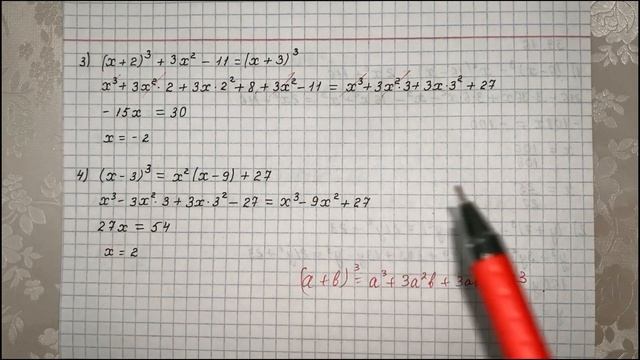 3) (x+2)³ + 3x² - 11 = (x+3)³
x³ + 3x²·2 + 3x·2² + 8 + 3x² - 11 = x³ + 3x²·3 + 3x·3² + 27
-15x = 30
x = -2
4) (x-3)³ = x²(x-9) + 27
x³ - 3x²·3 + 3x·3² - 27 = x³ - 9x² + 27
27x = 54
x = 2
(a+b)³ = a³ + 3a²b + 3a 3